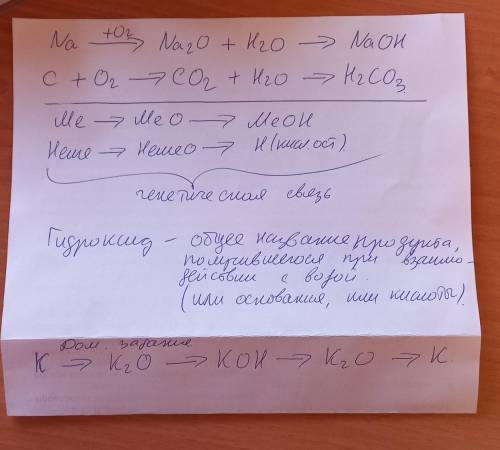 Na +O2 → Na2O + H2O → NaOH
C + O2 → CO2 + H2O → H2CO3
Me → MeO → MeOH
НеМе → НеМеО → Н(кисл ост)
генетическая связь
Гидроксид - общее название продукта,
получившегося при взаимо-
действии с водой.
(или основания, или кислоты).
Дом. задание
K → K2O → KOH → K2O → K